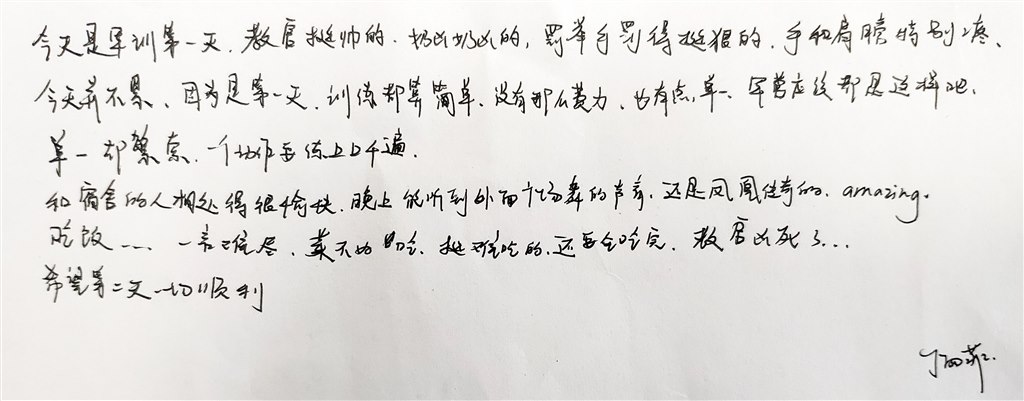 今天是军训第一天，教官挺帅的，奶凶奶凶的，罚举手罚得挺狠的，手和肩膀特别疼、
今天并不累、因为是第一天，训练都算简单，没有那么费力，也有点单一、军营应该都是这样吧，
单一却繁索，一个动作要练上上千遍，
和宿舍的人相处得很愉快，晚上能听到外面广场舞的声音，还是凤凰传奇的，amazing.
吃饭…… 一言难尽，菜不好吃，挺难吃的，还要全吃完，教官凶死了...
希望第二天一切顺利